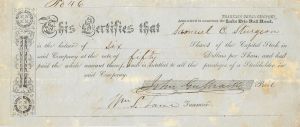 No 46
FRANKLIN CANAL COMPANY,
Lake Erie Rail Road.
This Certifies that Samuel B Sturgeon
is the holder of Six Shares of the Capital Stock in
said Company at the rate of fifty Dollars per Share, and has
paid the whole amount thereof, and is entitled to all the privileges of a Stockholder in
said Company.
John Galbraith Prest
Wm S. Lane Treasurer